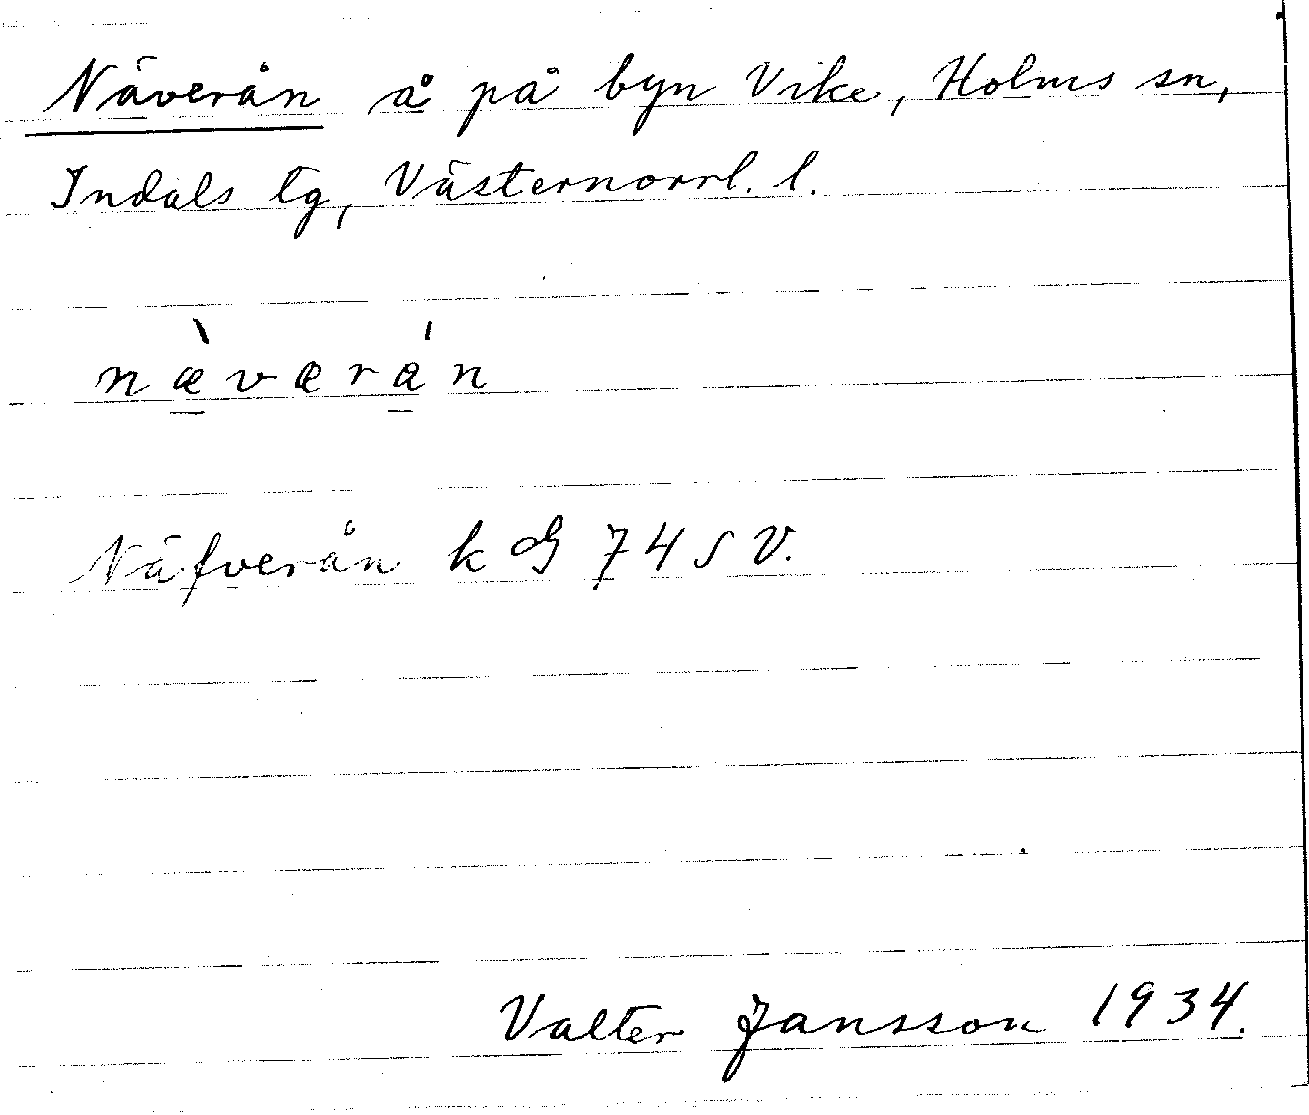 Näverån å på byn Vike, Holms sn,
Indals tg, Västernorrl. l.
næ̀værán
Näfverån k G 74 S V.
Valter Jansson 1934.